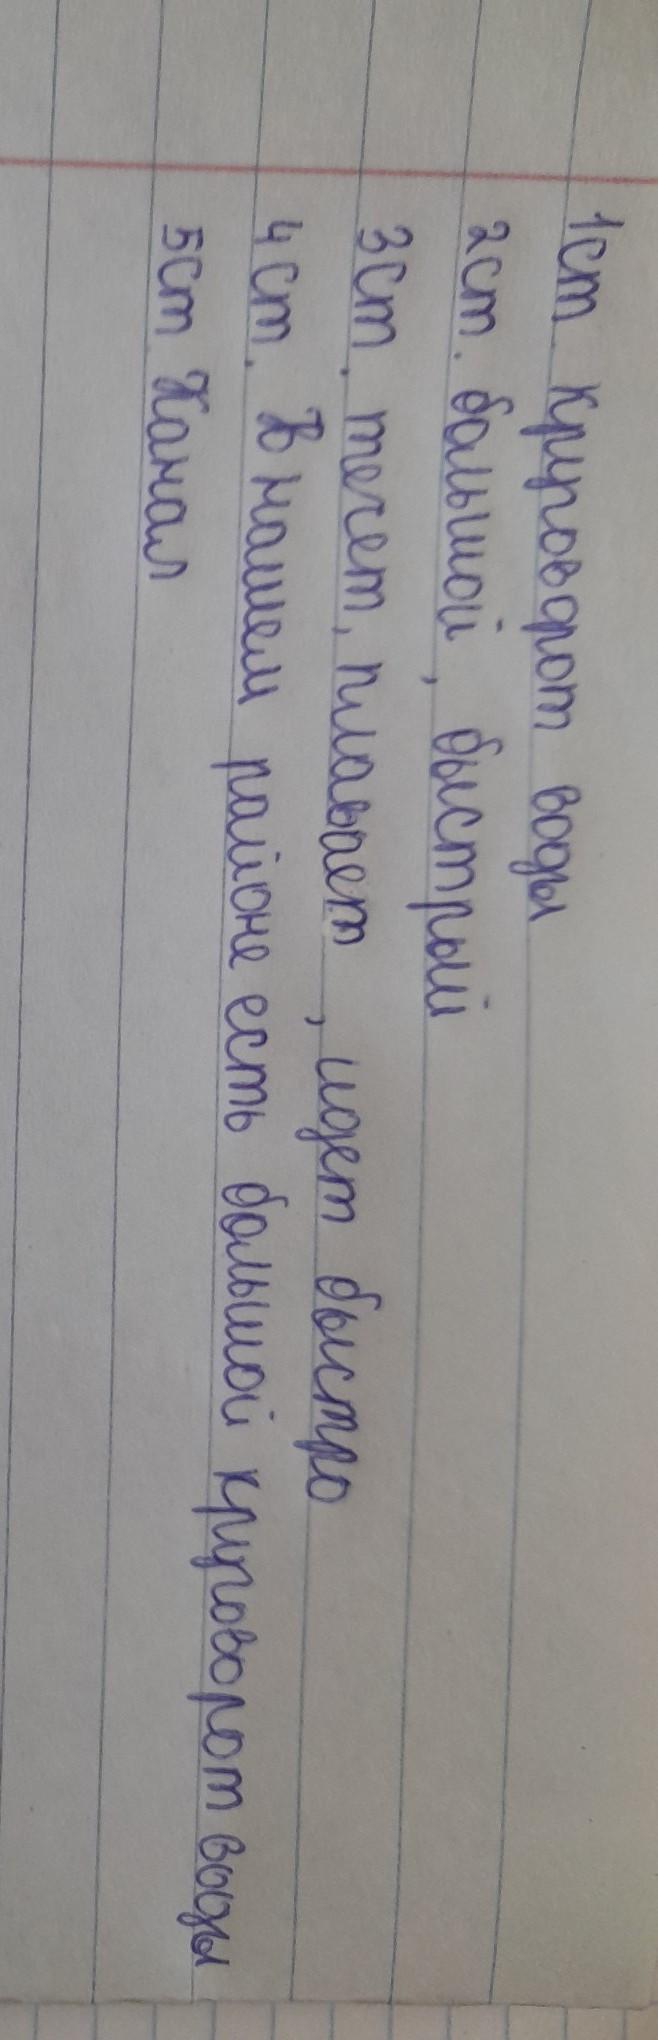 1ст. Круговорот воды
2ст. большой, быстрый
3ст. течет, плавает, идет быстро
4ст. В нашем районе есть большой круговорот воды
5ст Канал